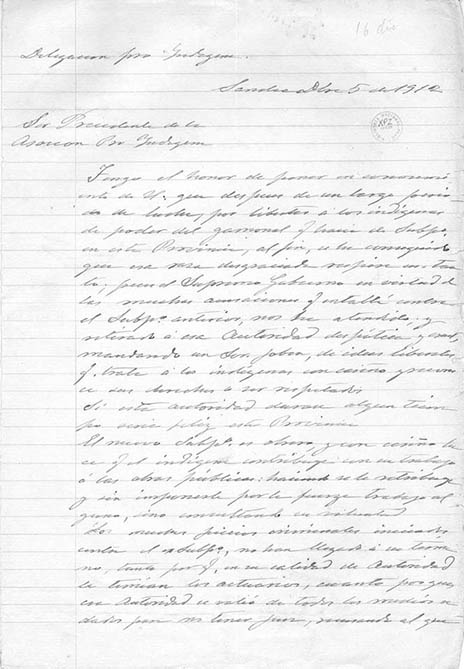 16 dic
Delegacion pro Indigena.
Sandia Dbre 5 de 1912
Sr. Presidente de la
Asocion Pro Indigena
Tengo el honor de poner en conocimi
ento de U. que despues de un largo perio
do de lucha, por libertar a los indigenas
de poder del gamonal y
en esta Provincia, al fin, se ha conseguido
que esa raza desgraciada respire un tan
to; pues el Supremo Gobierno en virtud de
las muchas acusaciones q. entablé contra
el Subpo. anterior, nos ha atendido: y
retirado á esa Autoridad despótica y
mandando un Señor joben, de ideas liberales
q. trata á los indigenas con cariño y recono
ce sus derechos a ser respetados
Si esta autoridad durase algun tiem
po seria feliz esta Provincia
El nuevo Subpo. es obrero, y con cariño ha
ce q. el indigena contribuya con su trabajo
á las obras publicas: haciendo se le retribuya
y sin imponerle por la fuerza trabajo al
guno, sino consultando su voluntad
Los muchos juicios criminales iniciados
contra el ex Subpo. no han llegado á su térmi
no, tanto por q. en su calidad de Autoridad
le temian los actuarios, cuanto por que
esa Autoridad se valió de todos los medios ve
dados para no tener juez, recusando al que